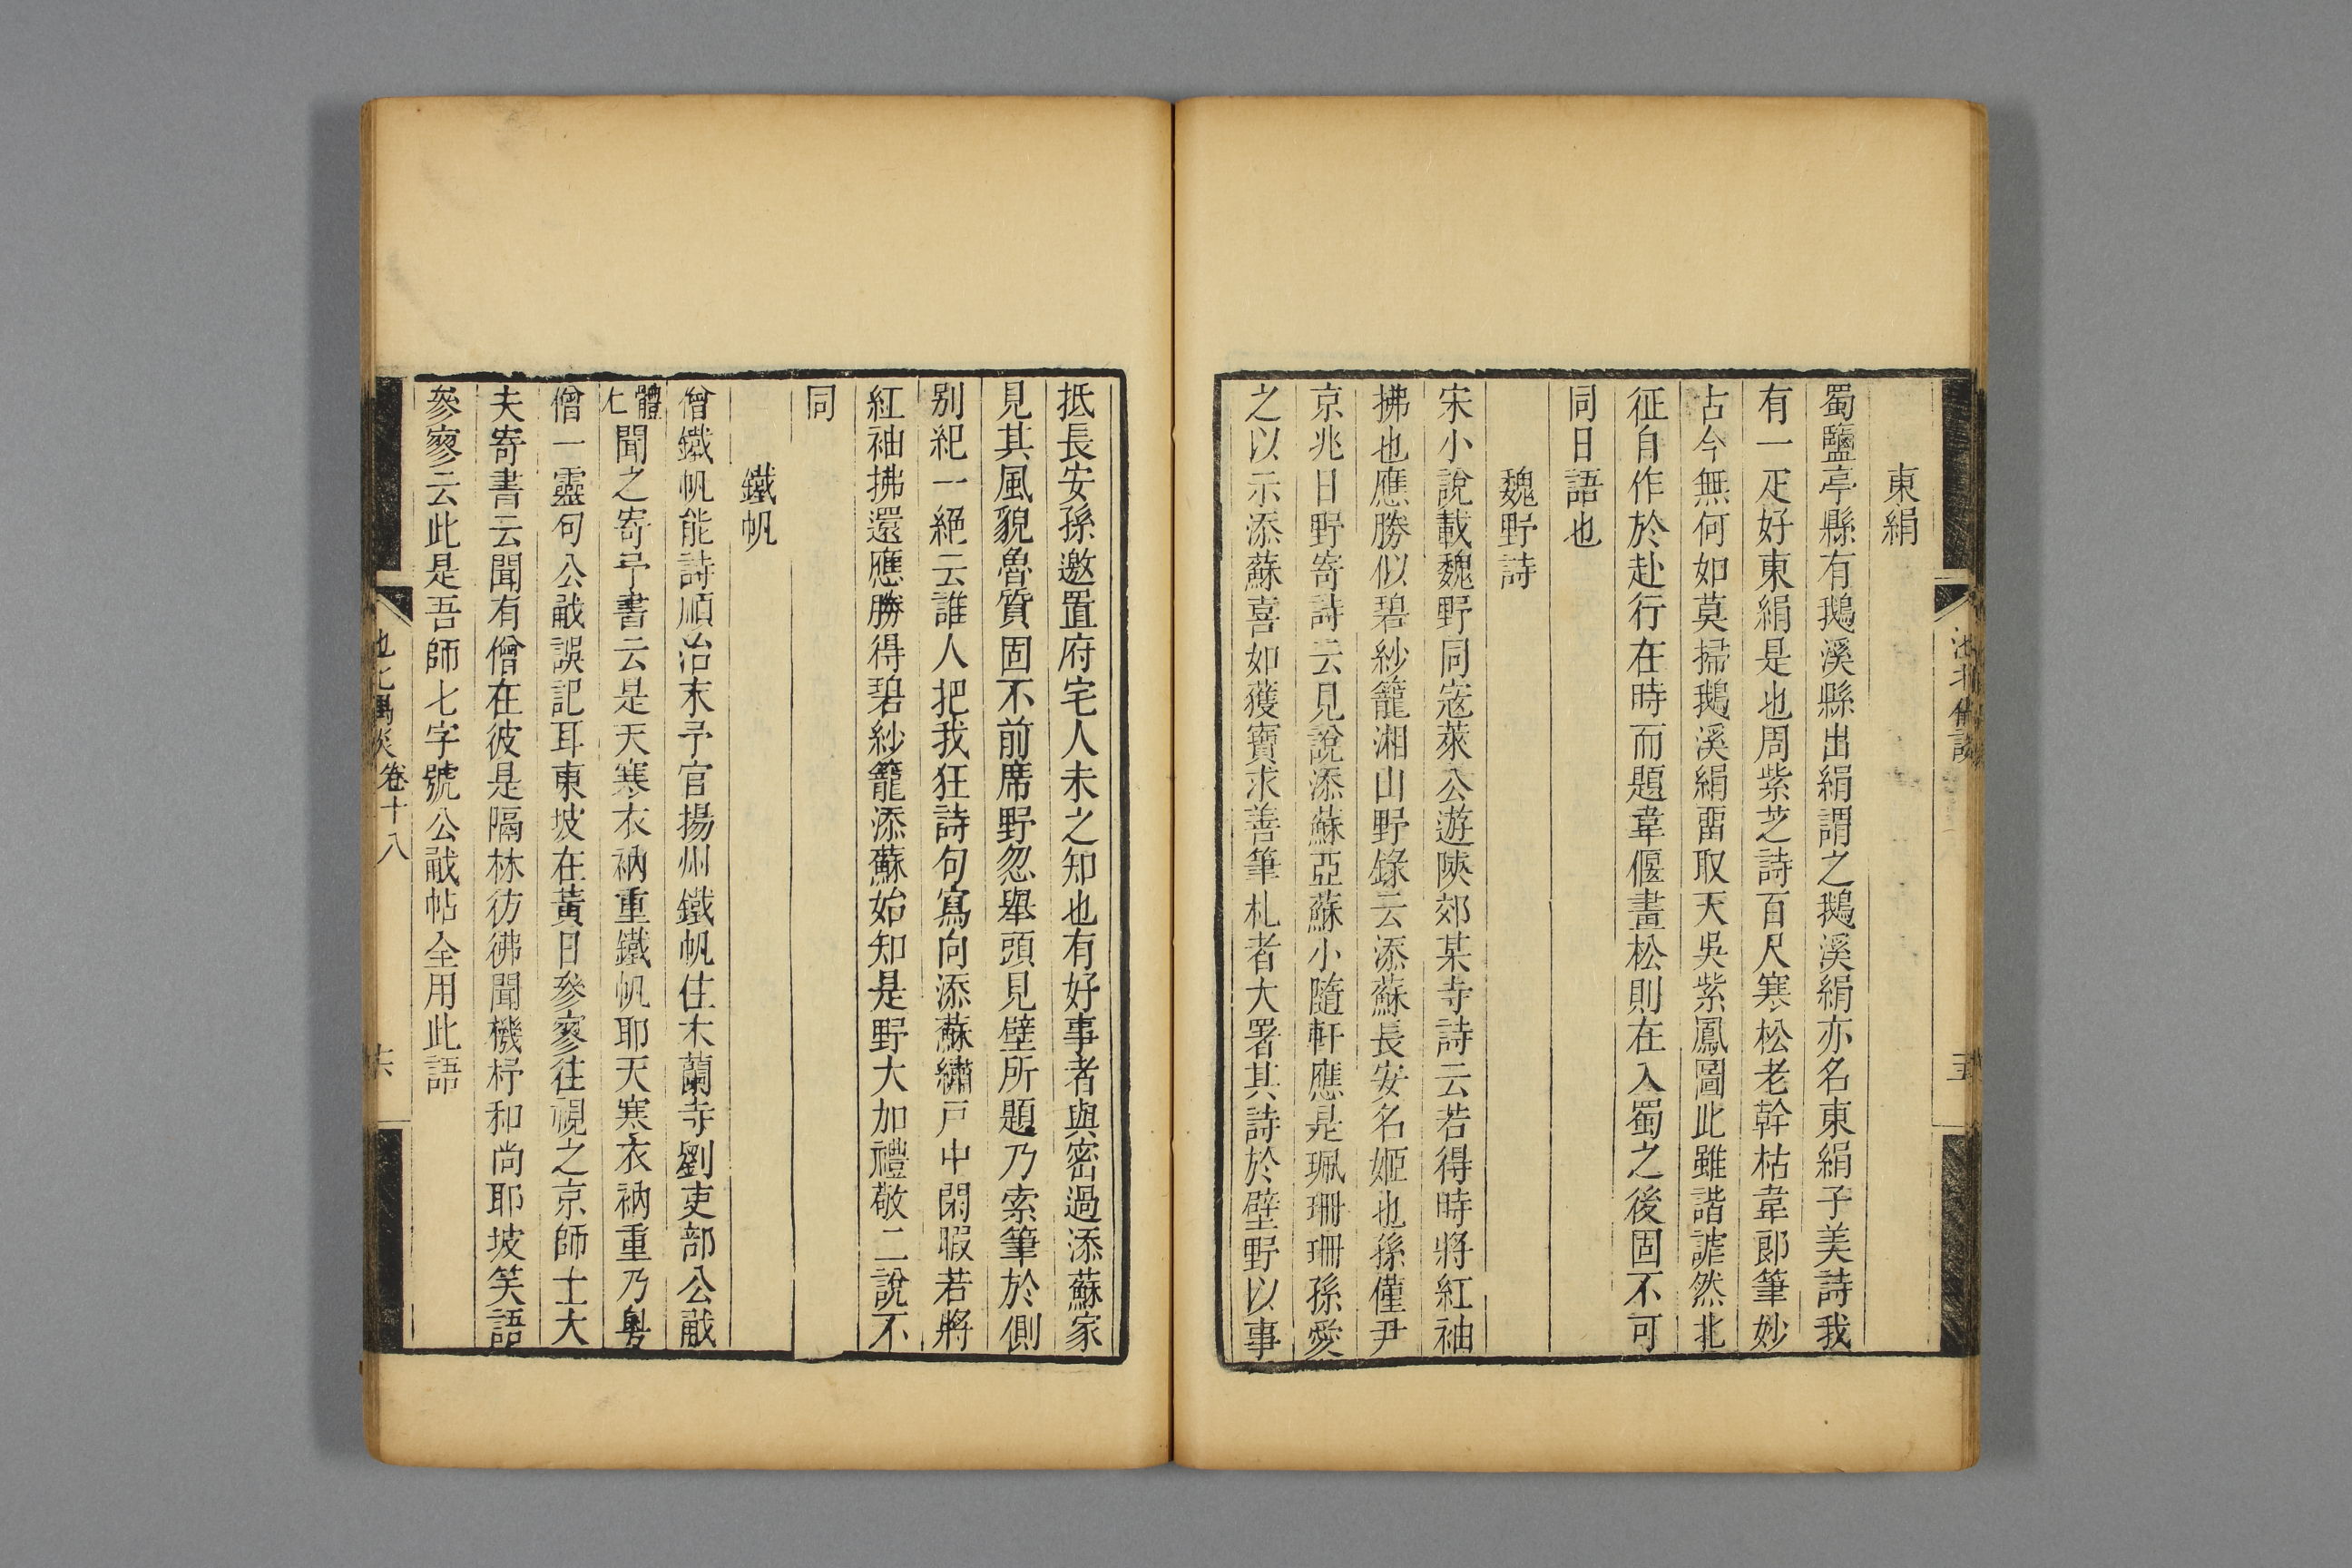 東絹
蜀鹽亭縣有鵝溪縣出絹謂之鵝溪絹亦名東絹子美詩我
有一疋好東絹是也周紫芝詩百尺寒松老幹枯韋郎筆妙
古今無何如莫掃鵝溪絹畱取天吳紫鳳圖此雖諧謔然北
征自作於赴行在時而題韋偃畫松則在入蜀之後固不可
同日語也
魏野詩
宋小說載魏野同寇萊公遊陝郊某寺詩云若得時將紅袖
拂也應勝似碧紗籠湘山野錄云添蘇長安名姬也孫僅尹
京兆日野寄詩云見說添蘇亞蘇小隨軒應是珮珊珊孫愛
之以示添蘇喜如獲寶求善筆札者大署其詩於壁野以事
抵長安孫邀置府宅人未之知也有好事者與密過添蘇家
見其風貌魯質固不前席野忽舉頭見壁所題乃索筆於側
别紀一絕云誰人把我狂詩句寫向添蘇繡戸中閑暇若將
紅袖拂還應勝得碧紗籠添蘇始知是野大加禮敬二說不
同
鐵帆
僧鐵帆能詩順治末予官揚州鐵帆住木蘭寺劉吏部公㦷
體仁聞之寄予書云是天寒衣衲重鐵帆耶天寒衣衲重乃粤
僧一靈句公㦷誤記耳東坡在黃日參寥往視之京師士大
夫寄書云聞有僧在彼是隔林彷彿聞機杼和尚耶坡笑語
參寥云此是吾師七字號公㦷帖全用此語
卷十八